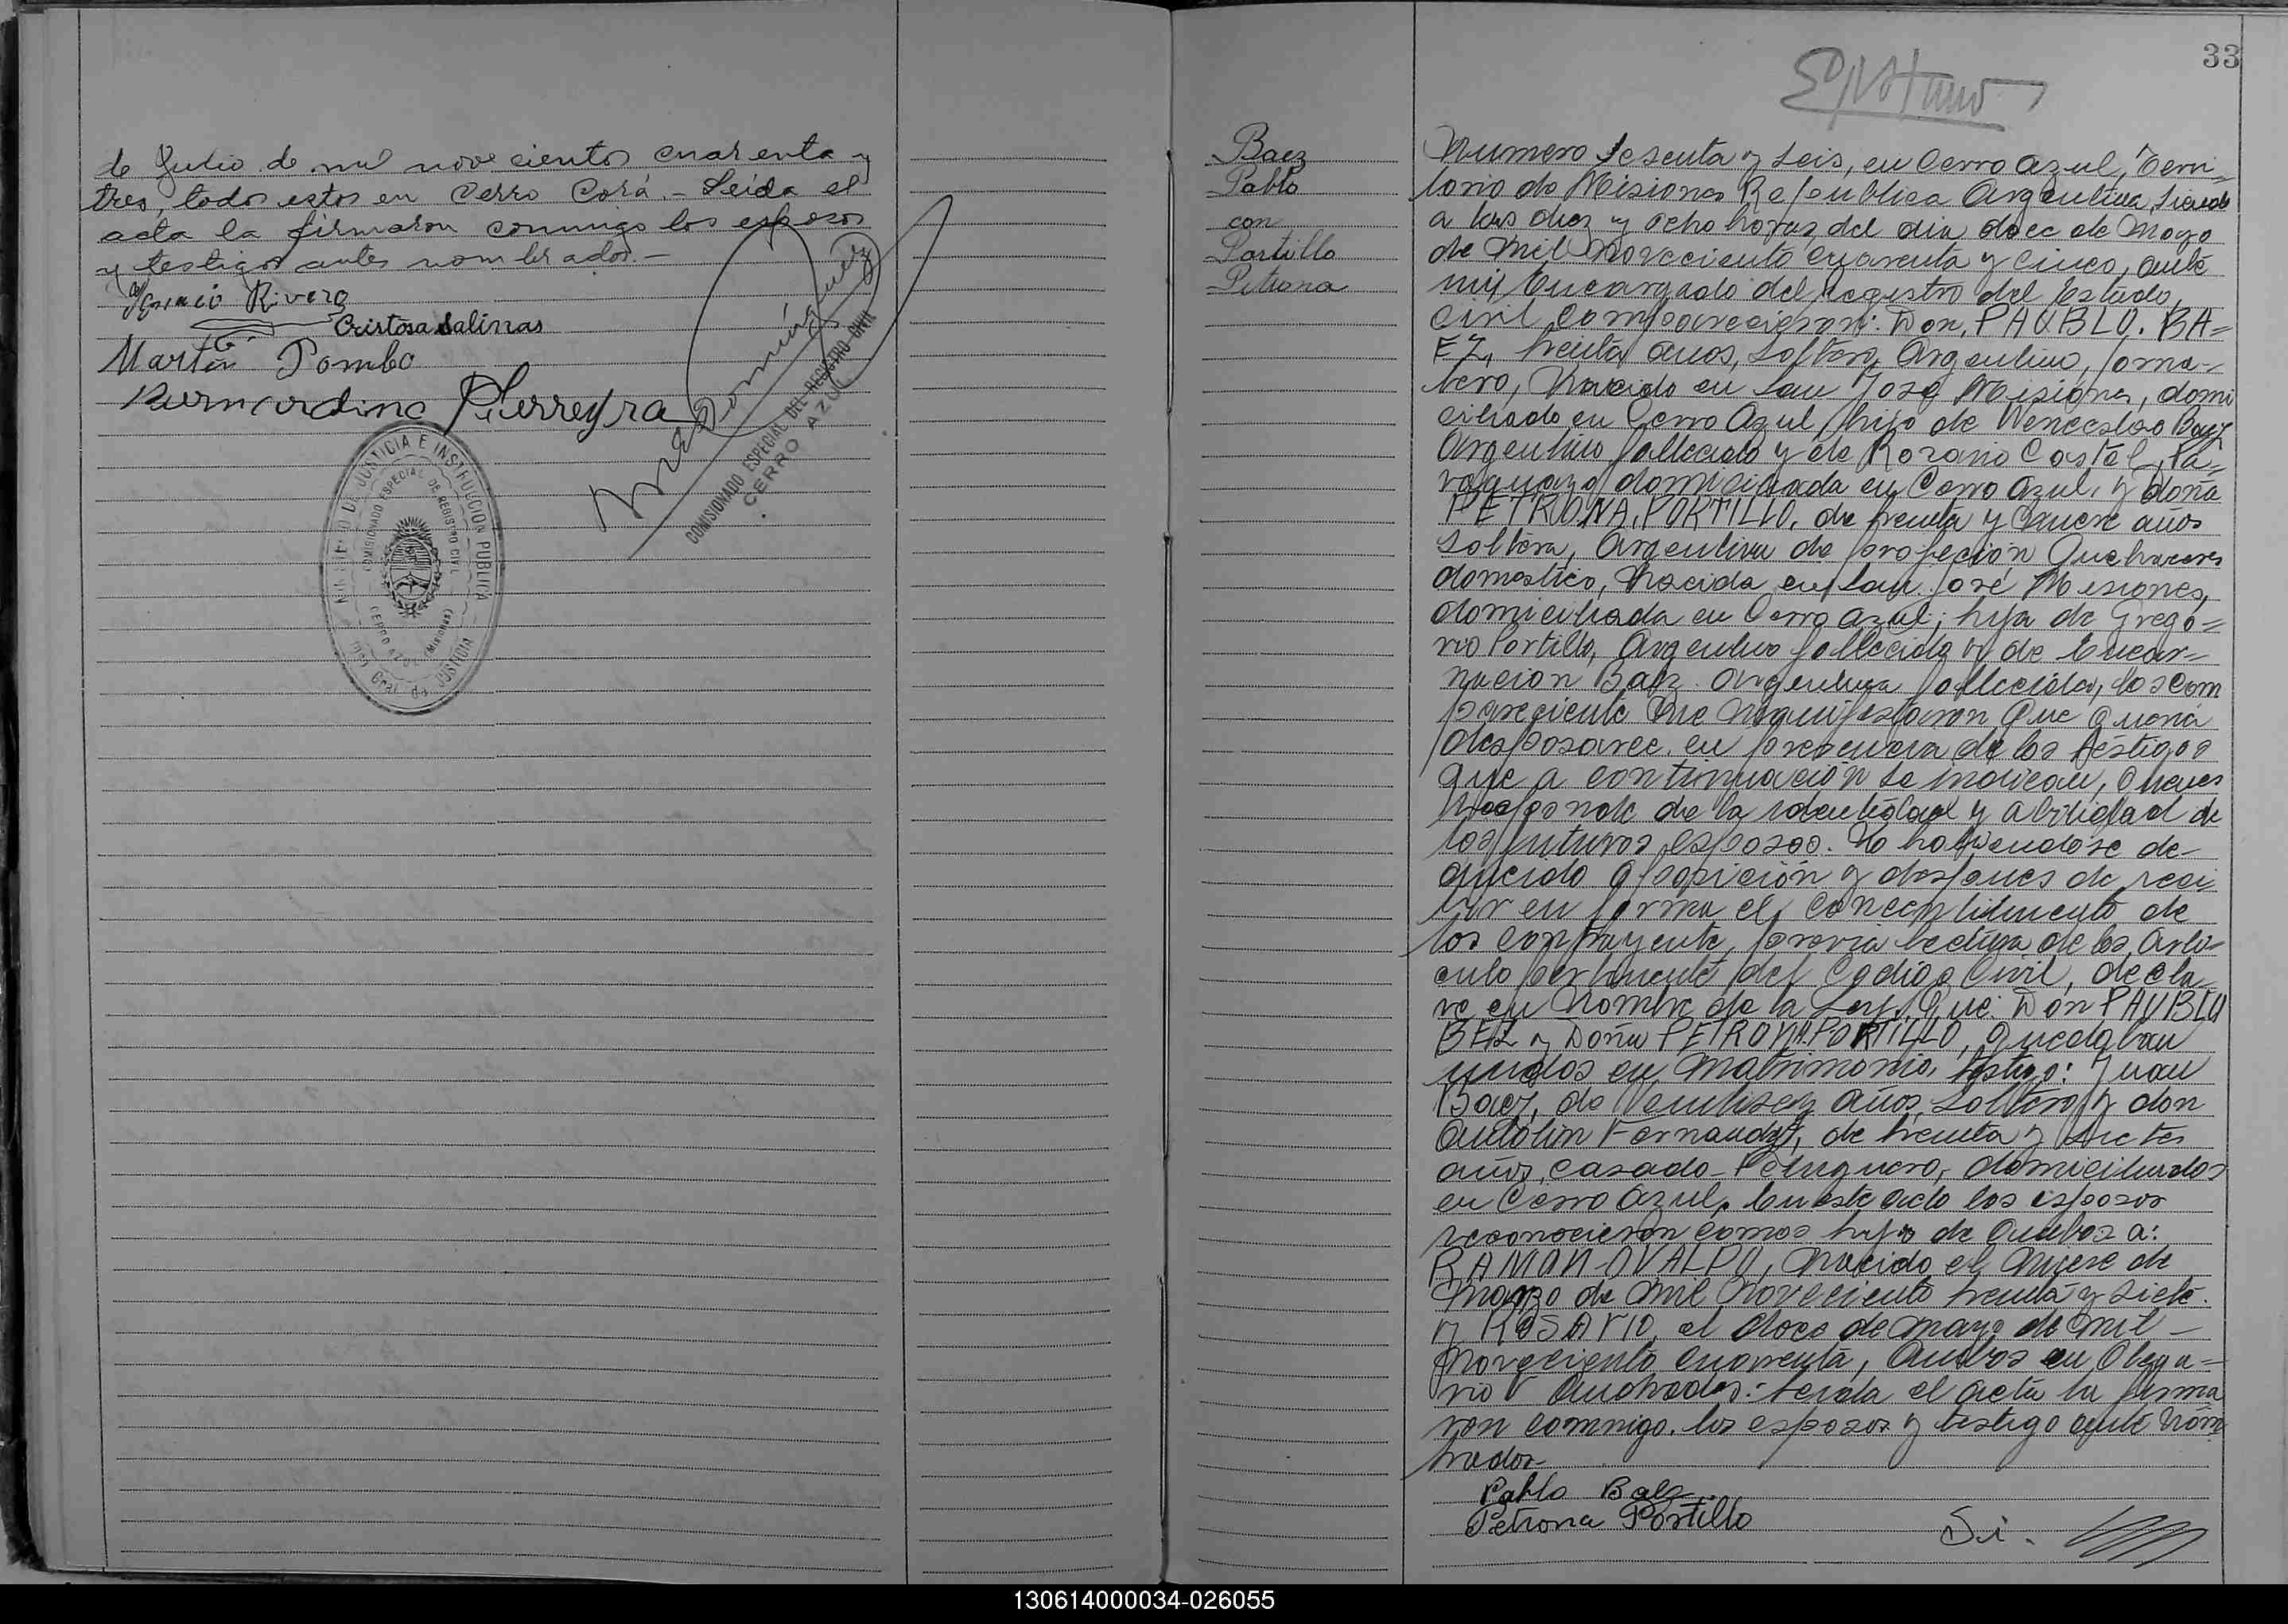 de Julio de mil novecientos cuarenta y
tres, todos estos en Cerro Corá.- Leída el
acta la firmaron conmigo los esposos
y testigos antes nombrados.-
Ignacio Rivero
Cristosa Salinas
Martín Pombo
Bernardino Pierreyra
COMISIONADO ESPECIAL DEL REGISTRO CIVIL
CERRO AZUL
MINISTERIO DE JUSTICIA E INSTRUCCION PUBLICA
COMISIONADO ESPECIAL DE REGISTRO CIVIL
CERRO AZUL (MISIONES)
Insp. Gral. de JUSTICIA
33
Baez
Pablo
con
Portillo
Petrona
Numero sesenta y seis, en Cerro Azul, Terri=
torio de Misiones Republica Argentina, siendo
a las diez y ocho horas del dia doce de Mayo
de Mil Novecientos cuarenta y cinco, ante
mi, Encargado del Registro del Estado,
Civil Comparecieron: Don, PAUBLO. BA=
EZ, treinta años, soltero, Argentino, Jorna-
lero, Nacido en San José Misiones, domi
ciliado en Cerro Azul, hijo de Wenceslao Baez
Argentino fallecido y de Rozario Castel, Pa=
raguaya domiciliada en Cerro Azul, y doña
PETRONA, PORTILLO, de treinta y nueve años
Soltera, Argentina de profeción Quehaceres
domestico, Nacida en San José Misiones,
domiciliada en Cerro Azul; hija de Grego=
rio Portillo, Argentino fallecido y de Encar=
nacion Baez. Argentina fallecida, los com
pareciente me manifestaron Que Queria
desposarce. en precencia de los testigos
que a continuación se indican, Quienes
responde de la identidad y abilidad de
los futuros esposos. No habiendose de-
ducido oposición y despues de reci
bir en forma el concentimiento de
los contrayente, previa lectura de los Arti-
culo pertinente del Codigo Civil, decla-
ro en Nombre de la Ley, Que: Don PAUBLO
BEZ y Doña PETRONA.PORTILLO, Quedaban
unidos en Matrimonio, testigo: Juan
Baez, de Veintiseis años, Soltero, y don
Antolin Fernandez, de treinta y siete
años, casado Peluquero, domiciliados
en Cerro Azul. En este acto los esposos
reconocieron comos hijos de Ambos a:
RAMON-OVALDO, Nacido el Nueve de
Marzo de Mil Novecientos treinta y siete.
y ROSARIO, el doce de Mayo de Mil-
Novecientos cuarenta, Ambos en Olega=
rio V Andrades:- Leida el acta la firma
ron conmigo. los esposos y testigo ante Nom
brados-
Pablo Baez
Petrona Portillo
Si.
130614000034-026055